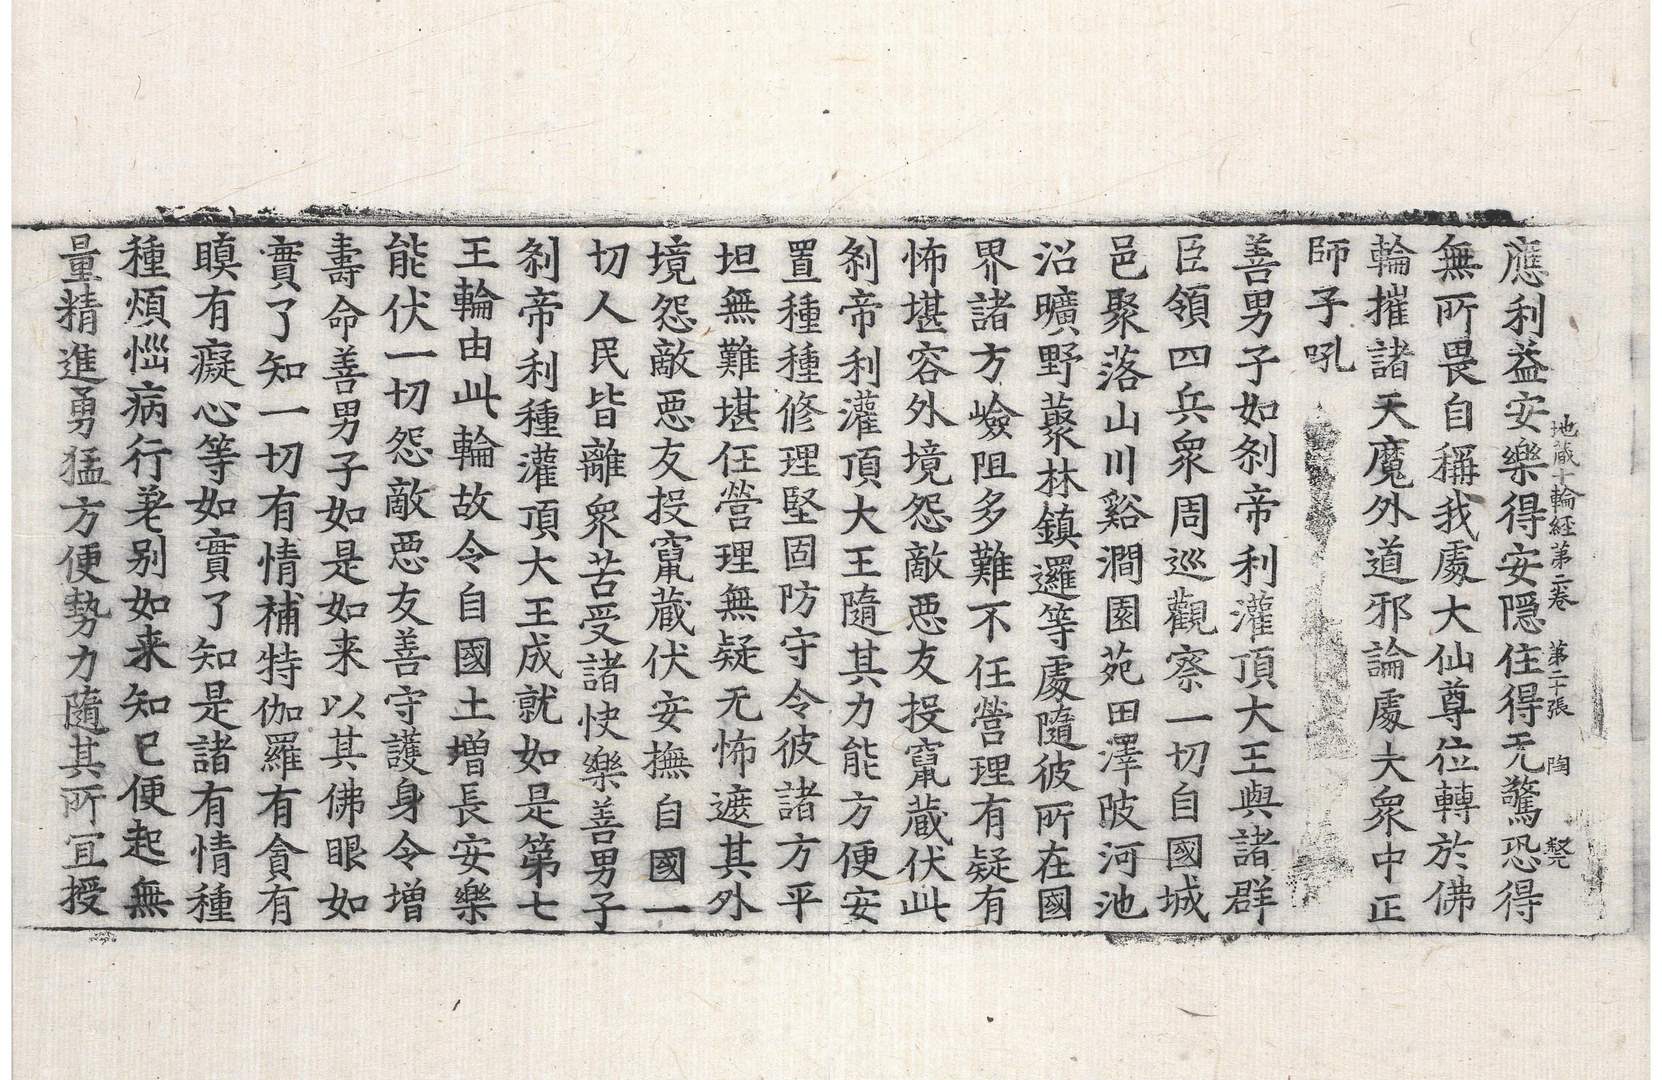 地蔵十輪経第二卷　第二十張　陶
應利益安樂得安隱住得无驚恐得
無所畏自稱我處大仙尊位轉於佛
輪摧諸天魔外道邪論處大衆中正
師子吼
善男子如刹帝利灌頂大王與諸群
臣領四兵衆周巡觀察一切自國城
邑聚落山川谿澗園苑田澤陂河池
沼曠野藂林鎮邏等處隨彼所在國
界諸方嶮阻多難不任營理有疑有
怖堪容外境怨敵惡友投竄蔵伏此
刹帝利灌頂大王隨其力能方便安
置種種修理堅固防守令彼諸方平
坦無難堪任營理無疑无怖遮其外
境怨敵惡友投竄蔵伏安撫自國一
切人民皆離衆苦受諸快樂善男子
刹帝利種灌頂大王成就如是第七
王輪由此輪故令自國土增長安樂
能伏一切怨敵惡友善守護身令增
壽命善男子如是如来以其佛眼如
實了知一切有情補特伽羅有貪有
瞋有癡心等如實了知是諸有情種
種煩惱病行差别如来知已便起無
量精進勇猛方便勢力隨其所宜授